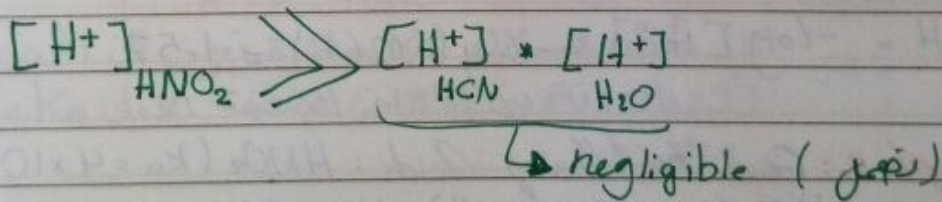 [H+]HNO2 >> [H+]HCN * [H+]H2O
↳ negligible (نهمل)